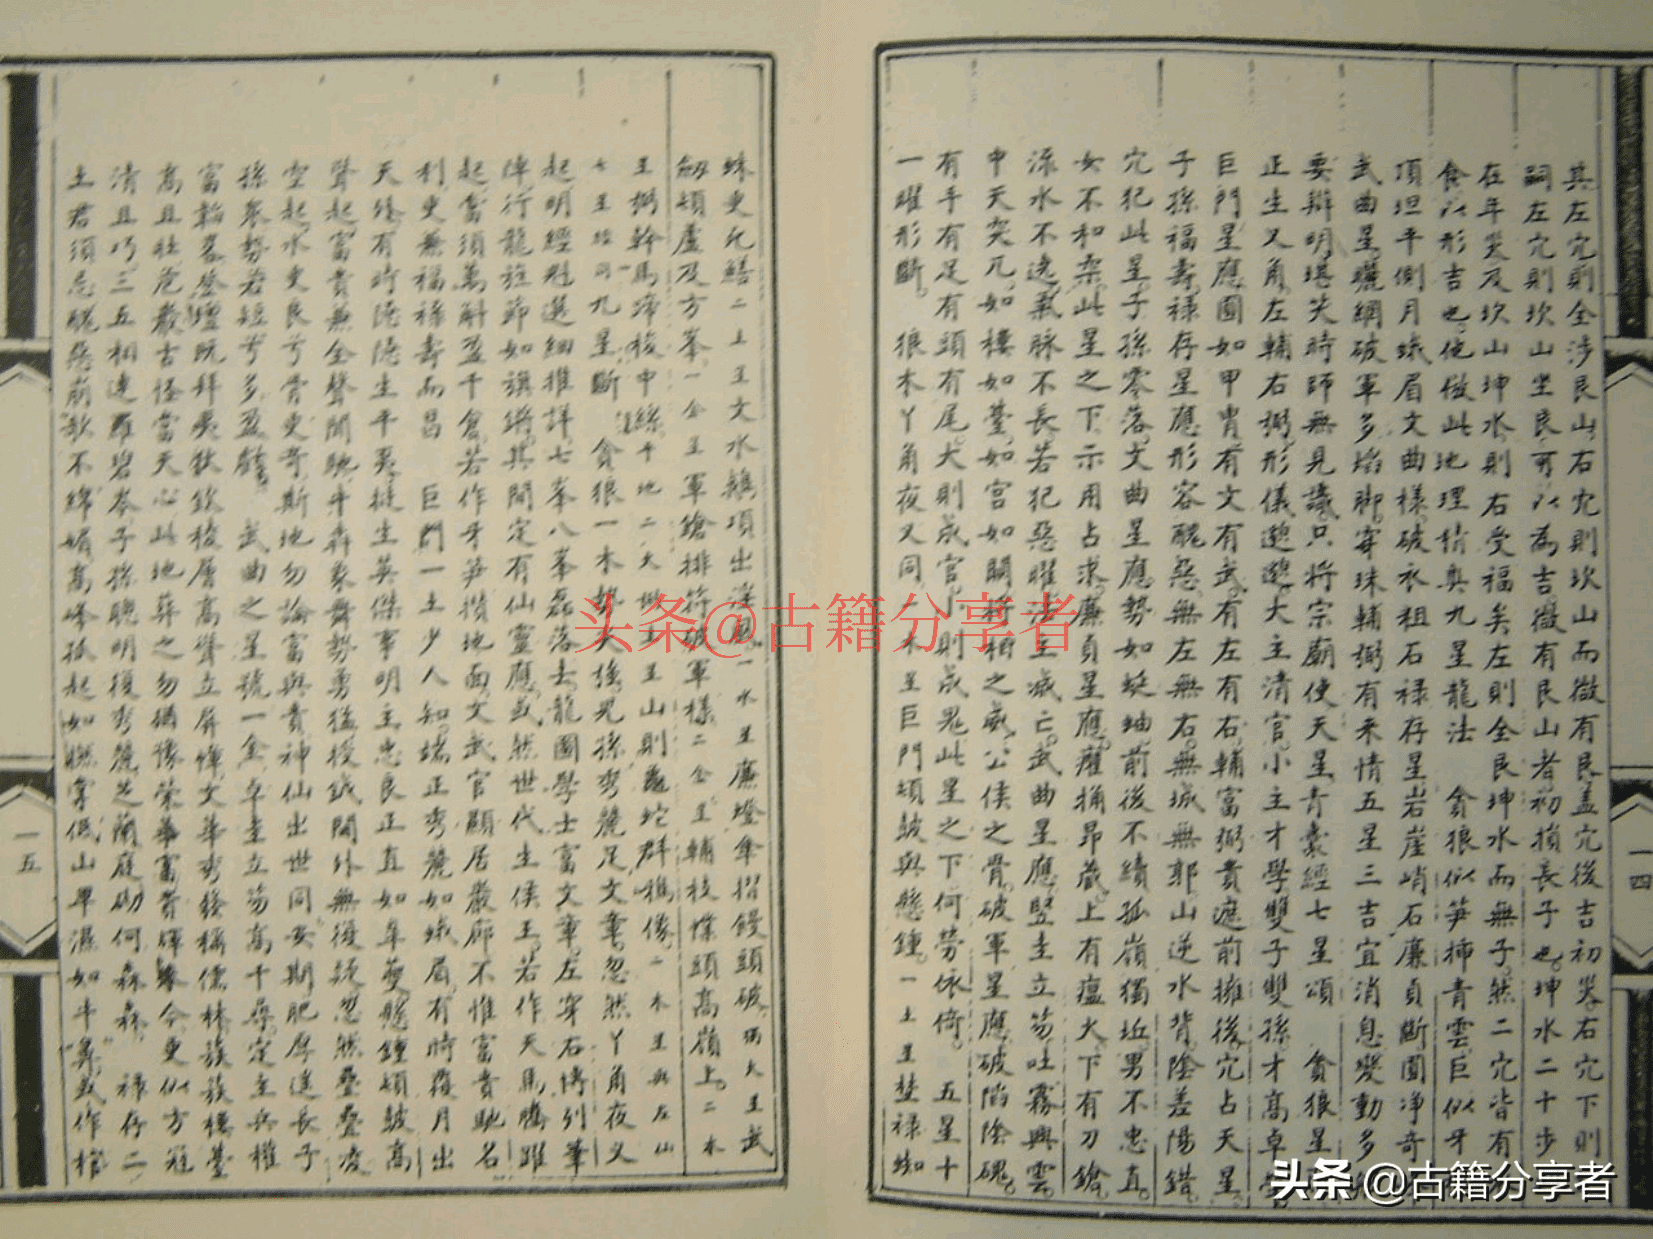 其左穴則全涉艮山右穴則坎山而微有艮蓋穴後吉初災右穴下則
嗣左穴則坎山坐艮可以為吉微有艮山者初損長子也坤水二十步
在年災及坎山坤水則右受福矣左則全艮坤水而無子然二穴皆有
食以形吉也他倣此地理精奧九星龍法 貪狼似笋揷青雲巨似牙
頂坦平側月蛾眉文曲樣破衣租石祿存星岩崖峭石廉貞斷圓淨奇
武曲星曬網破軍多焰脚穿珠輔弼有來情五星三吉宜消息變動多
要辯明堪笑時師無見識只將宗廟使天星青囊經七星頌 貪狼星
正生又角左輔右弼形儀遊遊大主清官小主才學雙子雙孫才高卓
巨門星應圓如甲冑有文有武有左有右輔富弼貴遮前擁後穴占天星
子孫福壽祿存星應形容醜惡無左無右無城無郭山逆水背陰差陽錯
穴犯此星子孫零落文曲星應勢如蜒蚰前後不續孤嶺獨坵男不忠直
女不和柔此星之下不用占求廉貞星應癰捅昂藏上有瘟火下有刀鎗
流水不逸氣脉不長若犯惡曜法主滅亡武曲星應豎圭立笏吐霧興雲
中天突兀如樓如臺如宮如闕將相之威公侯之骨破軍星應破陷陰磈
有手有足有頭有尾犬則成官小則成鬼此星之下何勞依倚 五星十
一曜形斷 狼木丫角夜叉同一木星巨門頓鼓與懸鍾一土星祿
蛛更允鱔二土文水鵝項出淫風一水星廉燈傘摺鏝頭破火星武
劍頓廬及方峯一金星軍鎗排符破軍樣二金星輔枝惵頭高嶺上二木
王弼幹馬蹄梭中絲平地二火星山則龜蛇群鵝像二水星與左山
七星 九星斷 貪狼一木勢大後兒孫秀麗足文章忽然丫角夜叉
起明經魁選細推詳七峯八峯磊落去龍圖學士富文章左穿右博列筆
陣行龍旌節如旗鎗其間定有仙靈應或然世代生侯王若作天馬騰躍
起當須萬斛盈千倉若作牙笋攢地面文武官顯居巖廊不惟富貴馳名
利更兼福祿壽而昌 巨門一土少人知端正秀麗如蛾眉有時覆月出
天外有時隱隱生平夷挺生英傑事明主忠良正直如皐夔懸鍾頓鼓高
聲起富貴無全聲聞馳牛犇象舞勢勇猛授鉞閫外無復疑忽然疊疊凌
空起水更良兮骨更奇斯地勿論富與貴神仙出世同安期肥厚逶長子
孫衆勢若短兮多盈虧 武曲之星號一金卓圭立笏高千尋定主兵權
富韜畧登壇旣拜夷狄欽梭層高聳立屏幛文華秀發稱儒林簇簇樓臺
高且壯危巖古怪當天心此地葬之勿猶豫榮華富貴輝今更似方冠
清且巧三五相連羅碧岑子孫聰明復秀麗芝蘭庭砌何森森 祿存二
土君須忌醜惡崩欹不綿媚高峰孤起如撫掌低山卑濕如牛鼻或作棺
一四
一五
头条@古籍分享者
头条 @古籍分享者